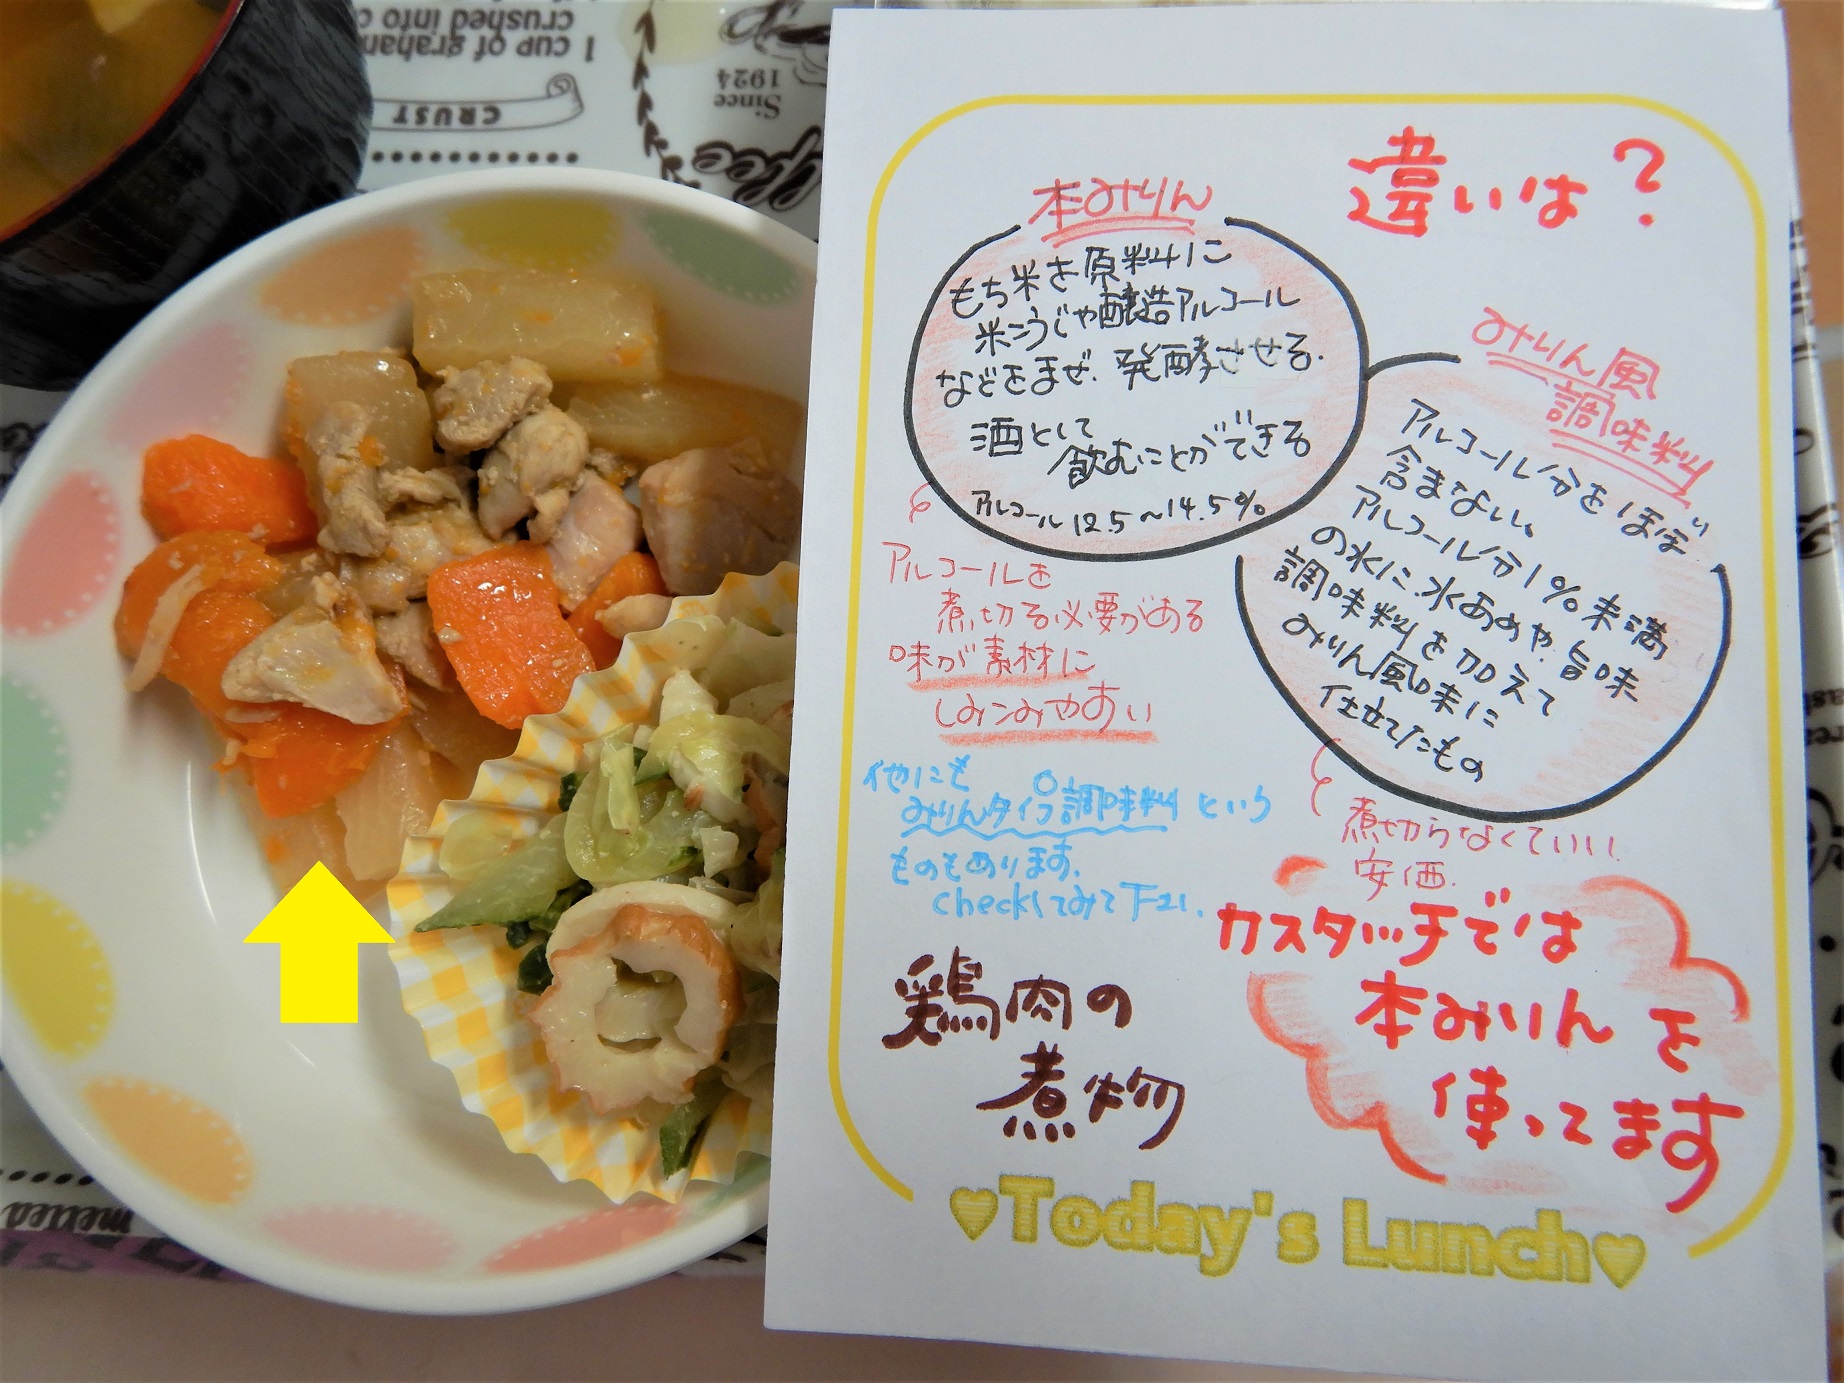 1 cup of graham
crushed into c
CRUST
Since
1924
違いは？
本みりん
もち米を原料に
米こうじや醸造アルコール
などをまぜ、発酵させる.
酒として
飲むことができる
アルコール 12.5～14.5%
アルコールを
煮切る必要がある
味が素材に
しみこみやすい
みりん風
調味料
アルコール分をほぼ
含まない、
アルコール分1%未満
の水に水あめや、旨味
調味料を加えて
みりん風味に
仕立てたもの
煮切らなくていい
安価.
他にも
みりんタイプ調味料 という
ものもあります.
checkしてみて下さい.
カスタッチでは
本みりん を
使ってます
鶏肉の
煮物
♥Today's Lunch♥
melted